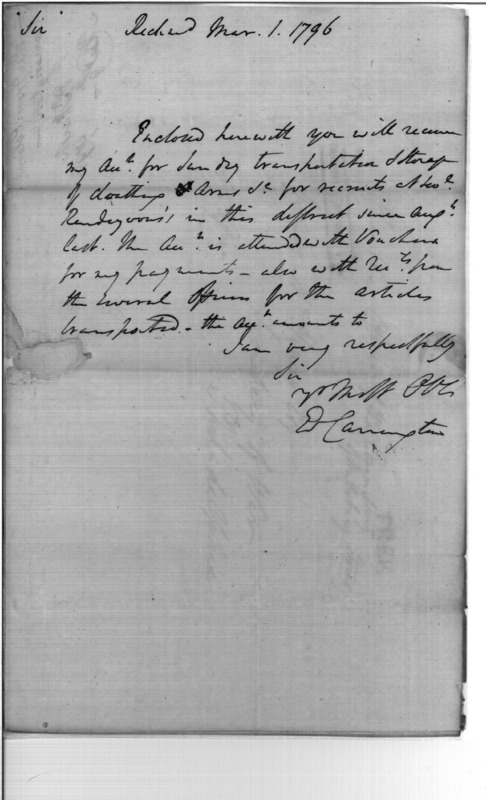 Sir Richmd Mar. 1. 1796
Enclosed herewith you will receive
my Acct. for Sundry transportation & Storage
of cloathing & Arms &c for recruits at
Rendezvous's in this district since Augt.
last. the Acct. is attended with Vouchers
for my payments - also with Rects. from
the several Officers for the articles
transported. - the Acct. amounts to
I am very respectfully
Sir
yr Most Obt
Ed Carrington